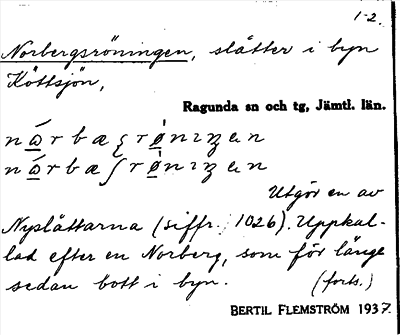 1-2.
Norbergsröningen, slåtter i byn
Köttsjön,
Ragunda sn och tg, Jämtl. län.
Utgör en av
Nyslåttarna (siffr. 1026). Uppkal-
lad efter en Norberg, som för länge
sedan bott i byn. (forts.)
BERTIL FLEMSTRÖM 1937.